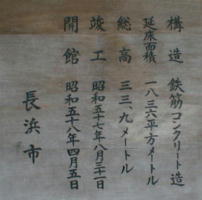 構造 鉄筋コンクリート造
延床面積 一八三六平方メートル
総高 三三、九メートル
竣工 昭和五十七年八月三十一日
開館 昭和五十八年四月五日
長浜市